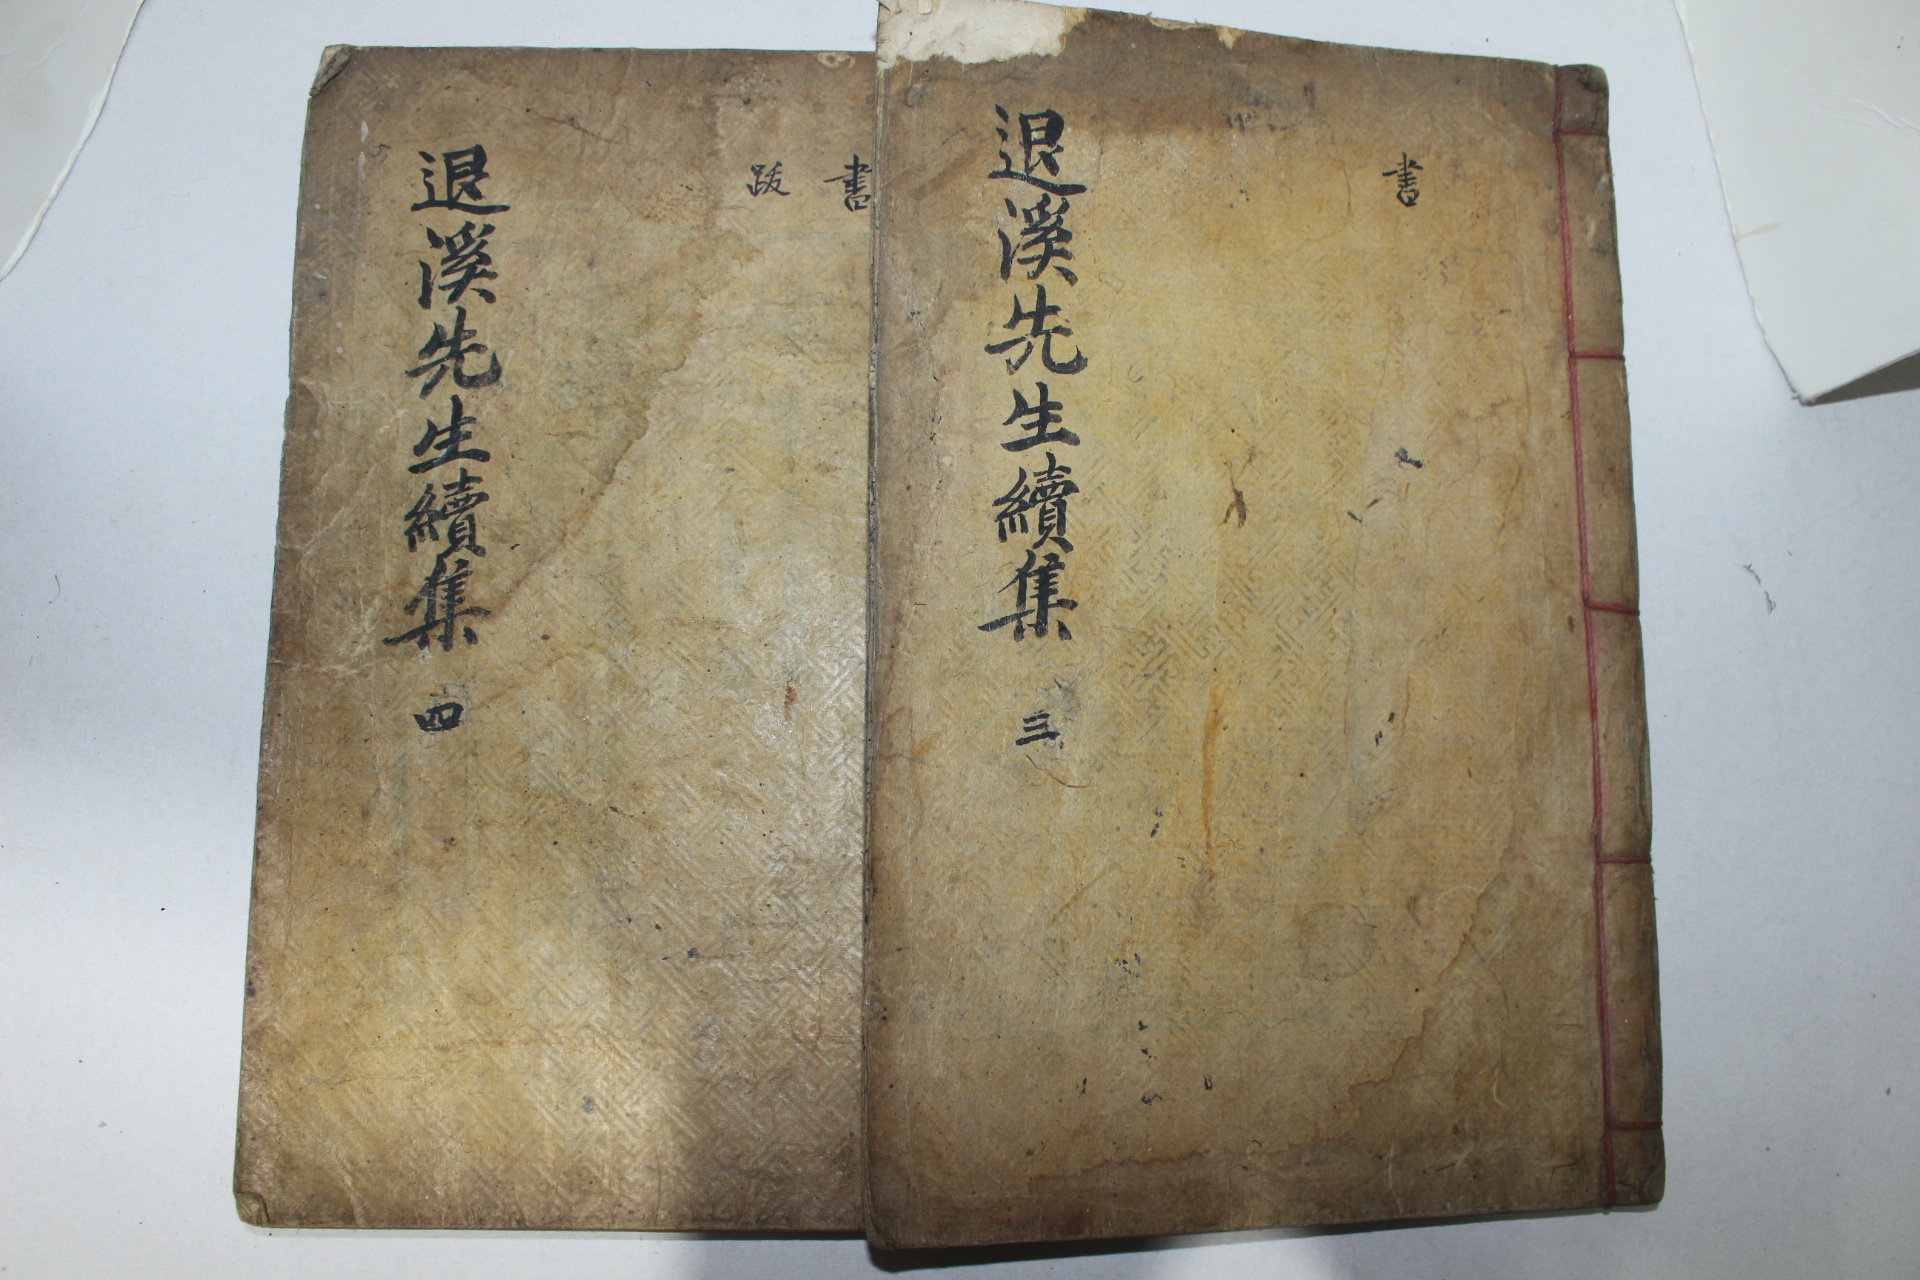 書
退溪先生續集 三
書
跋
退溪先生續集 四